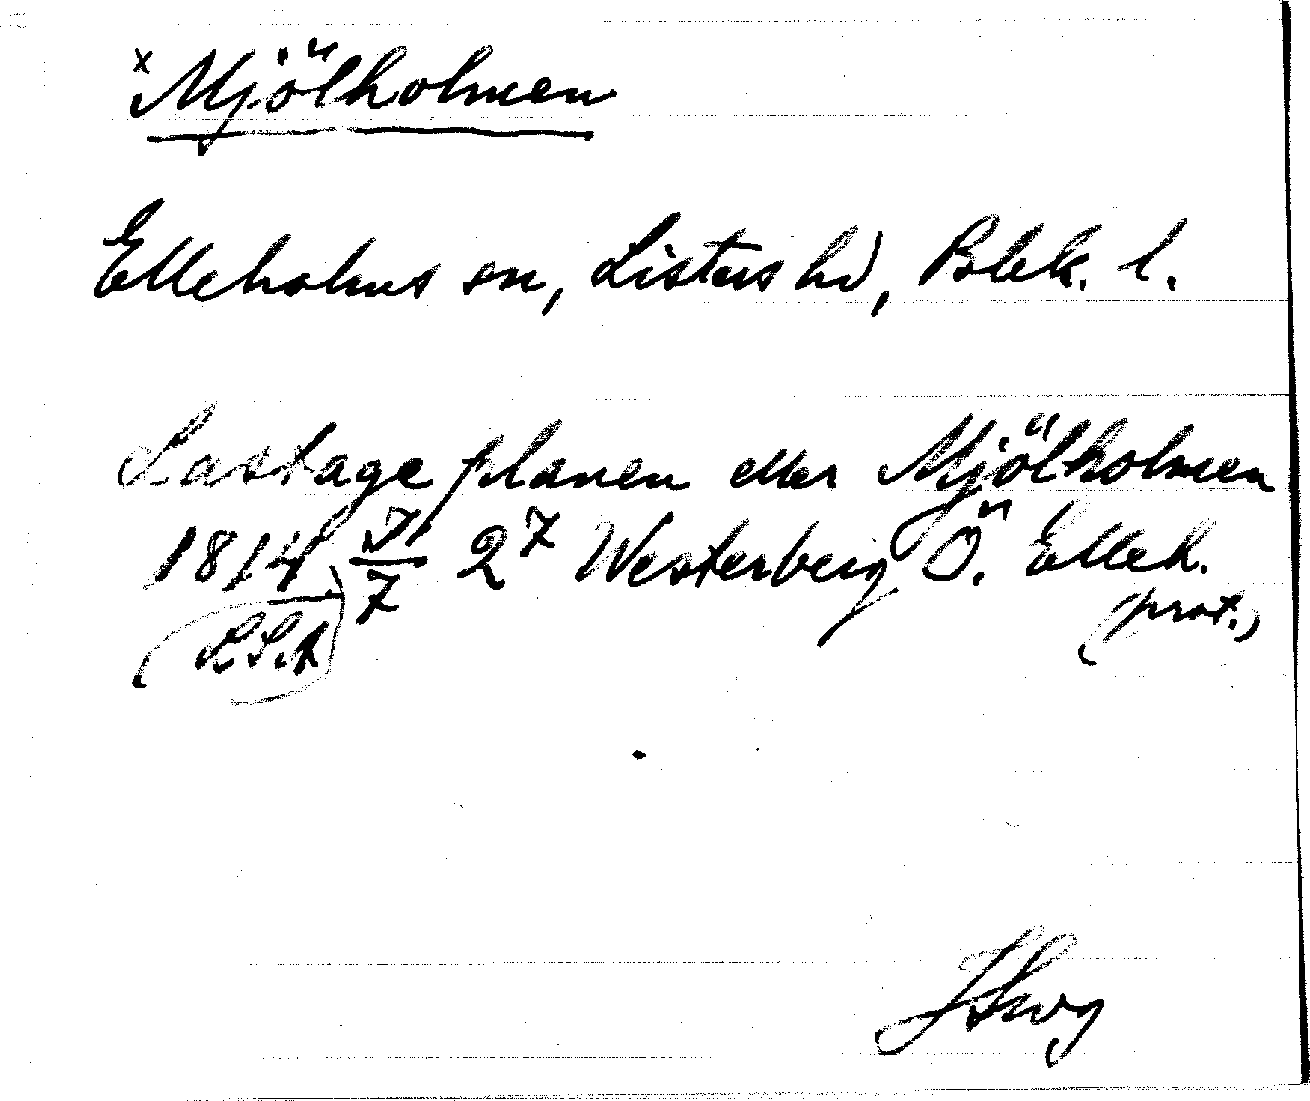 x Mjölholmen
Elleholms sn, Listers hd, Blek. l.
Lastageplanen eller Mjölholmen
1814 7 2⁷ Westerberg Ö. Elleh.
(LSA) (prot.)